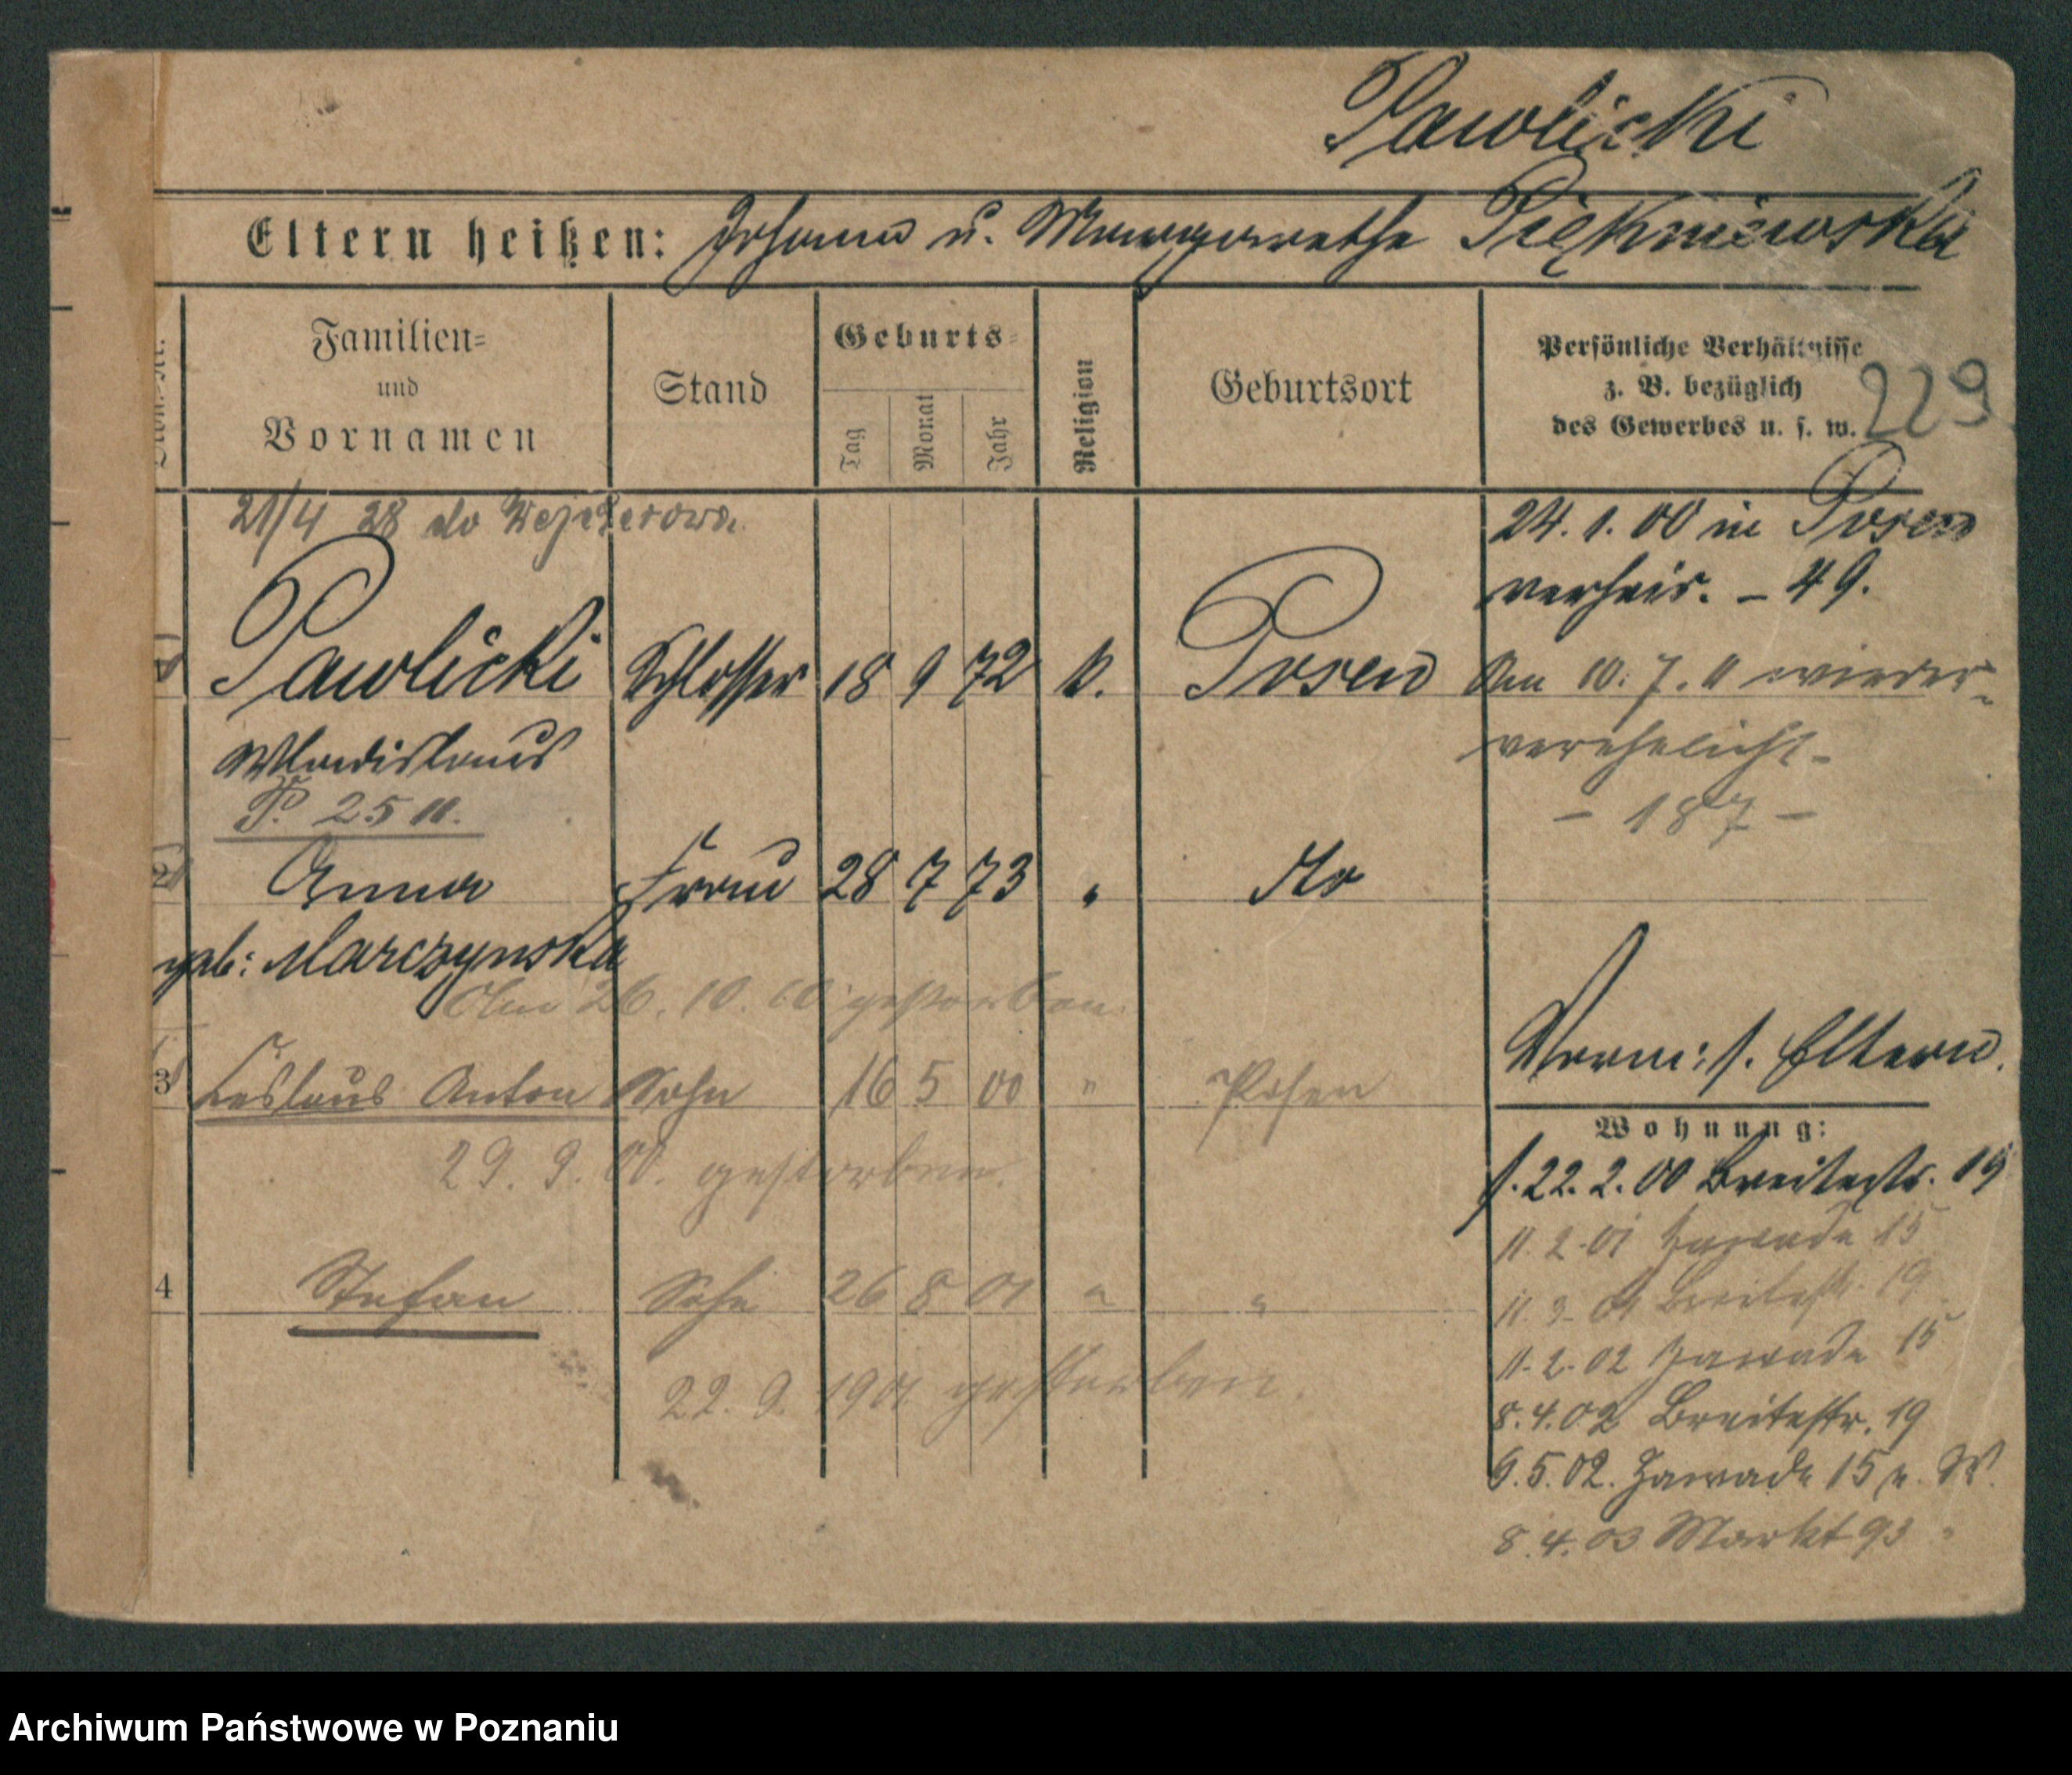 Pawlicki
Eltern heißen: Johann u. Margarethe Piękniewska
Familien= und Vornamen
Stand
Geburts=
Tag
Monat
Jahr
Religion
Geburtsort
Persönliche Verhältnisse
z. B. bezüglich
des Gewerbes u. s. w.
229
21/4 28 do Wejherowa
24. 1. 00 in Posen
verheir. – 49.
Pawlicki Schlosser 18 9 72 k. Posen
Am 10. 7. 11 wieder-
verehelicht –
– 187 –
Wladislaus
P. 25 11.
2 Anna Frau 28 7 73 "
geb: Marczynska
Am 26. 10. 10 gestorben
Vorm: s. Eltern.
3 Ceslaus Anton Sohn 16 5 00 " Posen
29. 9. 00. gestorben.
Wohnung:
s. 22. 2. 00 Breitestr. 19
11. 2. 01 Zawade 15
4 Stefan Sohn 26 8 01 " "
11. 3. 01 Breitestr. 19
11. 2. 02 Zawade 15
22. 9. 1901 gestorben.
8. 4. 02 Breitestr. 19
6. 5. 02. Zawade 15
8. 4. 03 Markt 93
Archiwum Państwowe w Poznaniu